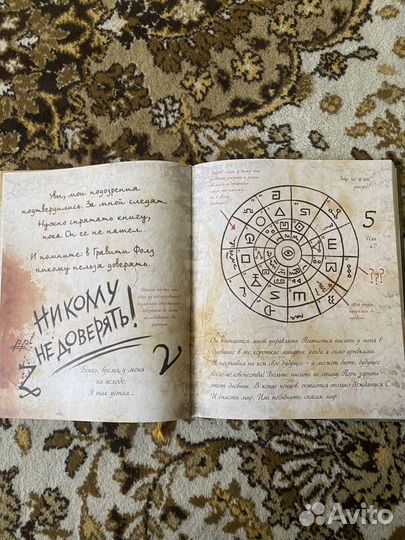 Увы, мои подозрения
подтвердились. За мной следят.
Нужно спрятать книгу,
пока Он ее не нашел.
И помните: в Гравити Фолз
никому нельзя доверять.
НИКОМУ
НЕ ДОВЕРЯТЬ!
Боюсь, время у меня
на исходе.
Я так устал...
2
Это не я их
рисую!
5
Или
6?
???
Он пытается мной управлять. Пытается писать у меня в
дневнике в те короткие минутки, когда я сплю урывками.
Я поставил на кон свое будущее - а может быть, будущее
всего человечества! Больше писать не стану. Пора зарыть
этот дневник. В конце концов, остается только дождаться С
И спасти мир. Или погибнуть, спасая мир.
Avito